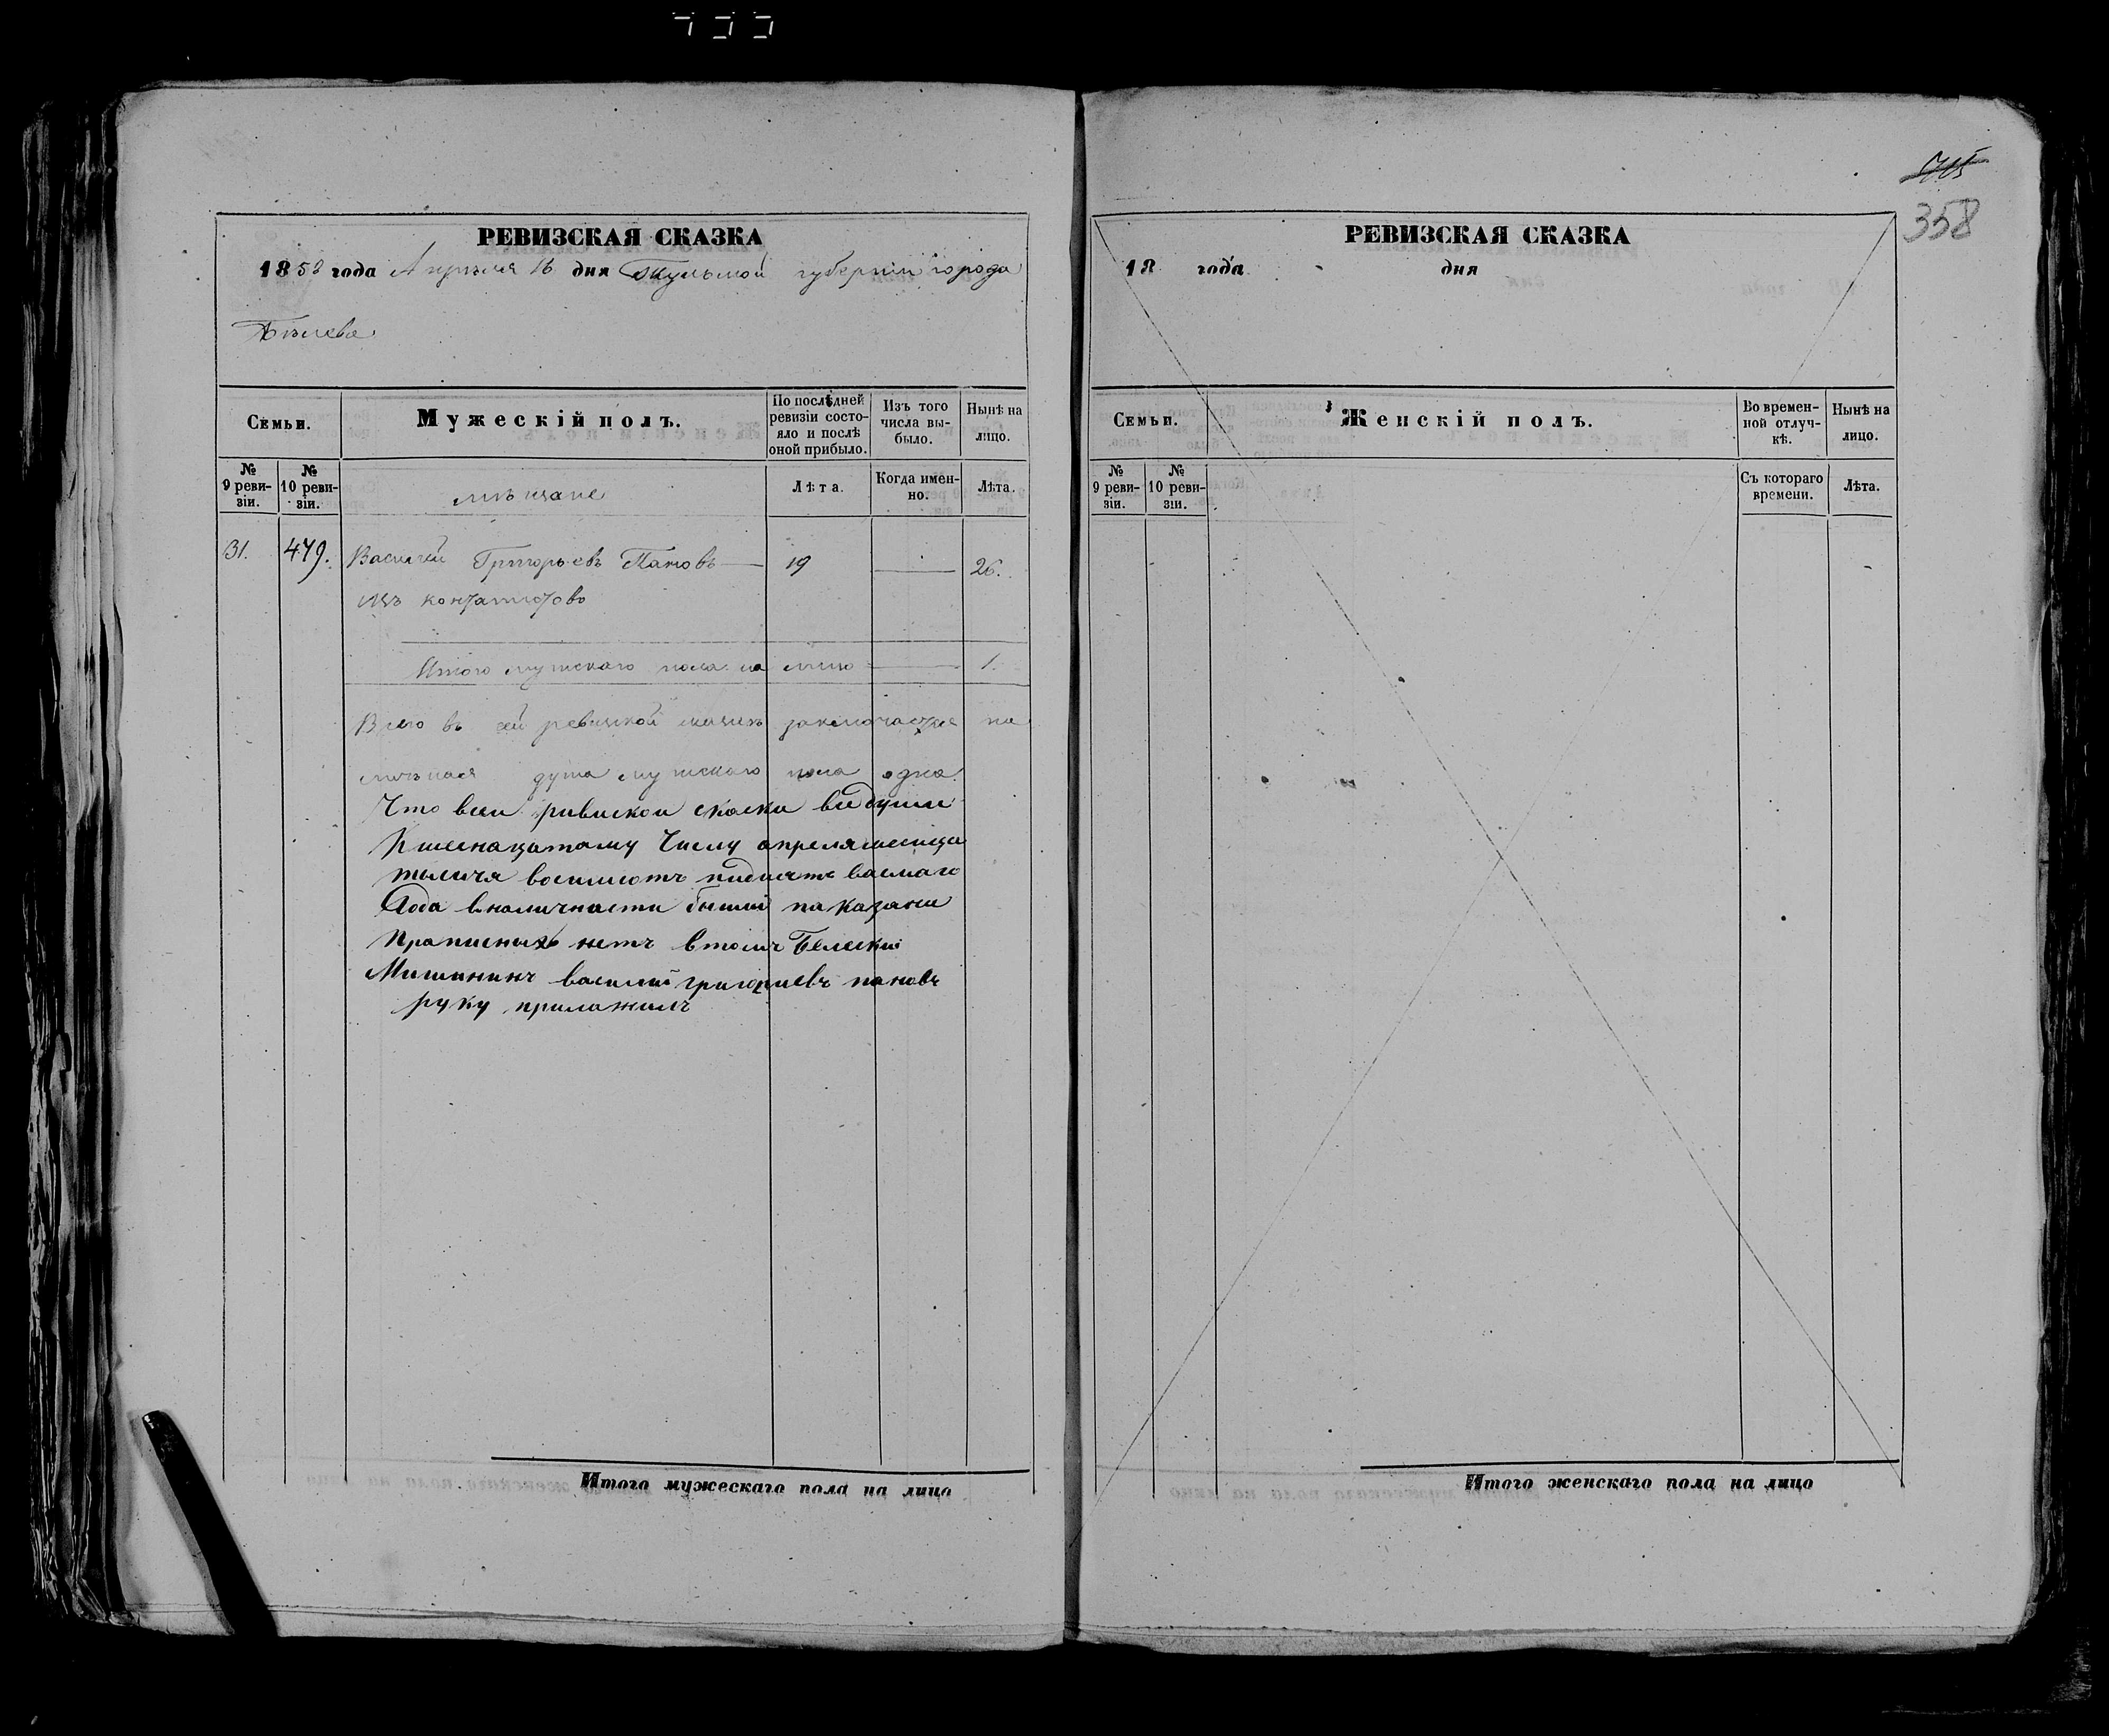 715
358
РЕВИЗСКАЯ СКАЗКА
1858 года Апреля 16 дня Тульской губернiи города
Бѣлева
Семьи.
Мужескiй полъ.
По послѣдней ревизiи состо-
яло и послѣ
оной прибыло.
Изъ того
числа вы-
было.
Нынѣ на
лицо.
№
9 реви-
зiи.
№
10 реви-
зiи.
мѣщане
Лѣта.
Когда имен-
но.
Лѣта.
31. 479. Василiй Григорьевъ Пановъ 19 26.
изъ
Итого мужскаго пола на лицо 1.
Всего въ сей ревизской сказкѣ заключается на
личьная душа мужскаго пола одна.
Что всеи ривискои скаски вседуши
Кшеснацатому Числу апреля месица
тысичя восимсотъ пидисятъ васмаго
Года вналичнасти бышии паказаны
Праписныхъ нетъ втомъ Белескии
Мишининъ василий григориевъ пановъ
руку прилажилъ
Итого мужескаго пола на лицо
РЕВИЗСКАЯ СКАЗКА
18 года дня
Семьи.
Женскiй полъ.
Во времен-
ной отлуч-
кѣ.
Нынѣ на
лицо.
№
9 реви-
зiи.
№
10 реви-
зiи.
Съ котораго
времени.
Лѣта.
Итого женскаго пола на лицо